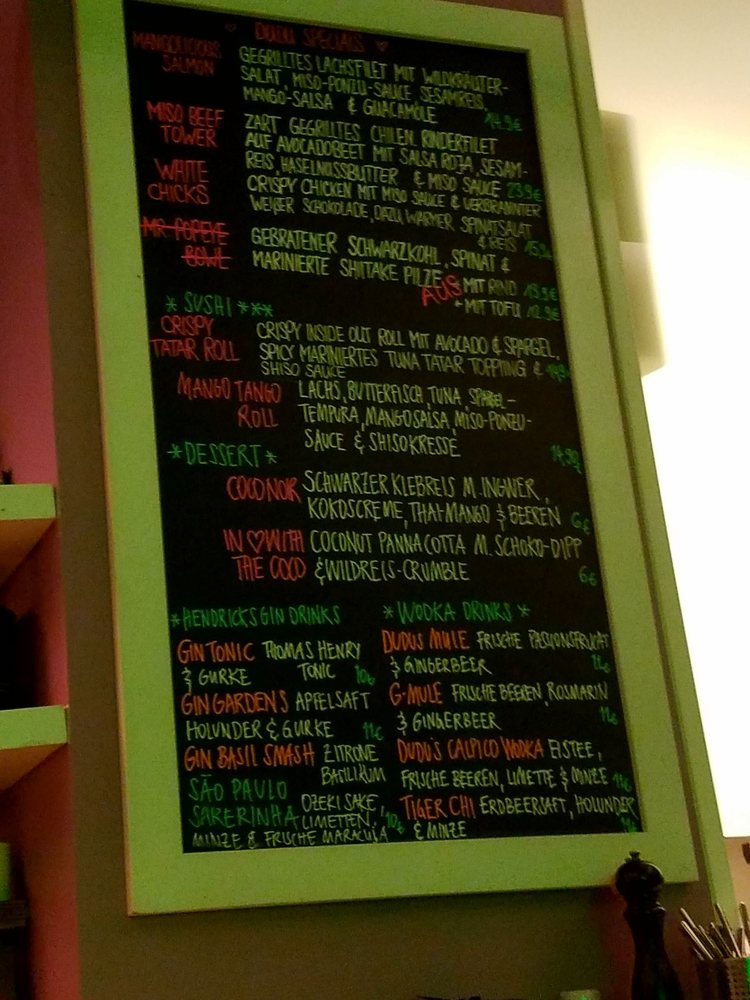 ♥ DUDU SPECIALS ♥
MANGOLICIOUS SALMON
GEGRILLTES LACHSFILET MIT WILDKRÄUTER-
SALAT, MISO-PONZU-SAUCE SESAMREIS,
MANGO-SALSA & GUACAMOLE 14.9€
MISO BEEF TOWER
ZART GEGRILLTES CHILEN. RINDERFILET
AUF AVOCADOBEET MIT SALSA ROJA, SESAM-
REIS, HASELNUSSBUTTER & MISO SAUCE 23.9€
WHITE CHICKS
CRISPY CHICKEN MIT MISO SAUCE & VERBRANNTER
WEIßER SCHOKOLADE, DAZU WARMER SPINATSALAT
& REIS
MR POPEYE BOWL
GEBRATENER SCHWARZKOHL, SPINAT &
MARINIERTE SHIITAKE PILZE
AUS
+ MIT RIND
+ MIT TOFU 12.9€
* SUSHI ***
CRISPY TATAR ROLL
CRISPY INSIDE OUT ROLL MIT AVOCADO & SPARGEL,
SPICY MARINIERTES TUNA TATAR TOPPING &
SHISO SAUCE
MANGO TANGO ROLL
LACHS, BUTTERFISCH TUNA, SPARGEL-
TEMPURA, MANGOSALSA, MISO-PONZU-
SAUCE & SHISOKRESSE 14,9€
*DESSERT*
COCONOR
SCHWARZER KLEBREIS M. INGWER,
KOKOSCREME, THAI-MANGO & BEEREN 6€
IN ♡ WITH THE COCO
COCONUT PANNACOTTA M. SCHOKO-DIPP
& WILDREIS-CRUMBLE 6€
*HENDRICKS GIN DRINKS
GIN TONIC THOMAS HENRY
& GURKE TONIC 10€
GIN GARDEN'S APFELSAFT
HOLUNDER & GURKE 11€
GIN BASIL SMASH ZITRONE
BASILIKUM
SÃO PAULO
SAKERINHA OZEKI SAKE,
LIMETTEN, 10€
MINZE & FRISCHE MARACUJA
* WODKA DRINKS *
DUDUS MULE FRISCHE PASSIONSFRUCHT
& GINGERBEER 11€
G-MULE FRISCHE BEEREN, ROSMARIN
& GINGERBEER 11€
DUDU'S CALPICO WODKA EISTEE,
FRISCHE BEEREN, LIMETTE & MINZE 11€
TIGER CHI ERDBEERSAFT, HOLUNDER
& MINZE